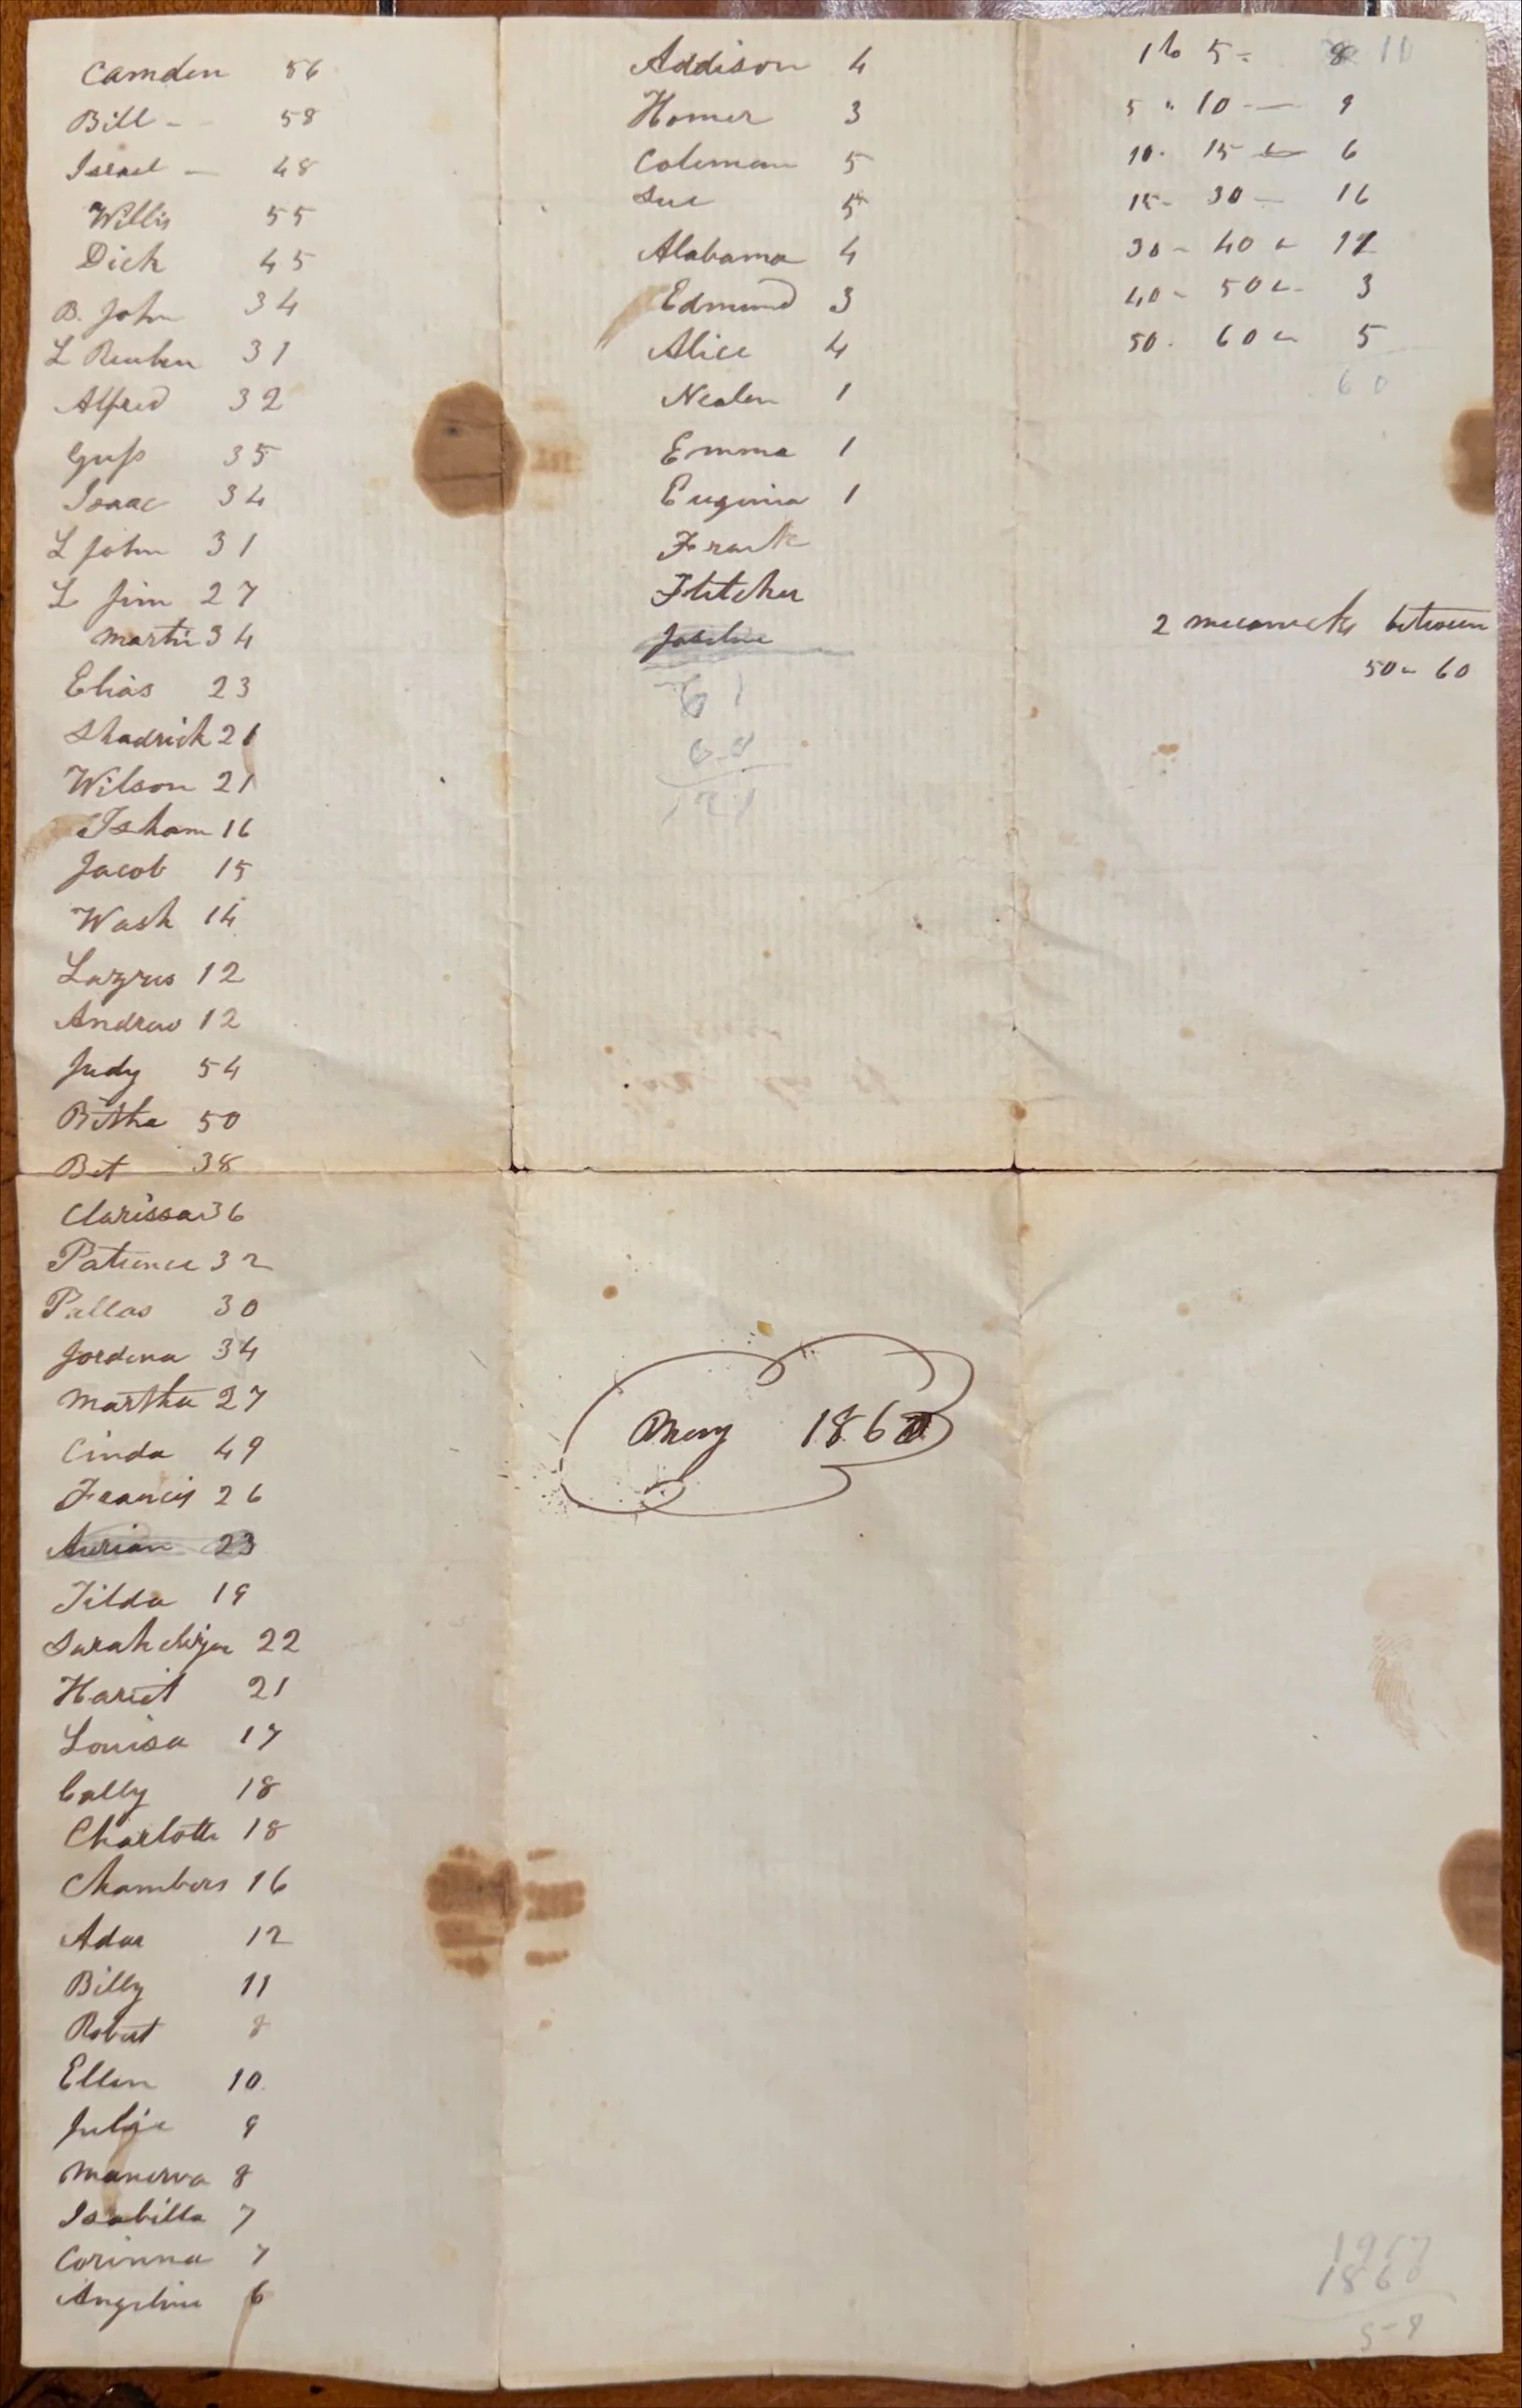 Camden 56
Bill - 58
Israel - 48
Willis 55
Dick 45
B. John 34
L Reuben 31
Alfred 32
Guss 35
Isaac 34
L John 31
L Jim 27
Martin 34
Elias 23
Shadrick 21
Wilson 21
Isham 16
Jacob 15
Wash 14
Lazrus 12
Andrew 12
Judy 54
Bitha 50
Bet 38
Clarissa 36
Patience 32
Pallas 30
Jordena 34
Martha 27
Cinda 49
Francis 26
23
Tilda 19
Sarah 22
Hariet 21
Louisa 17
Cally 18
Charlotte 18
Chambers 16
Adar 12
Billy 11
Robert 8
Ellen 10
Julia 9
Manerva 8
Isabilla 7
Corinna 7
Angeline 6
Addison 4
Homer 3
Coleman 5
Sue 5
Alabama 4
Edmund 3
Alice 4
Nealen 1
Emma 1
Eugenia 1
Frank
Fletcher
Joseline
61
60
121
May 1860
1 to 5 = 8 11
5 " 10 - 9
10 - 15 - 6
15 - 30 - 16
30 - 40 - 12
40 - 50 - 3
50 - 60 - 5
60
2 mecanicks between
50 - 60
1957
1860